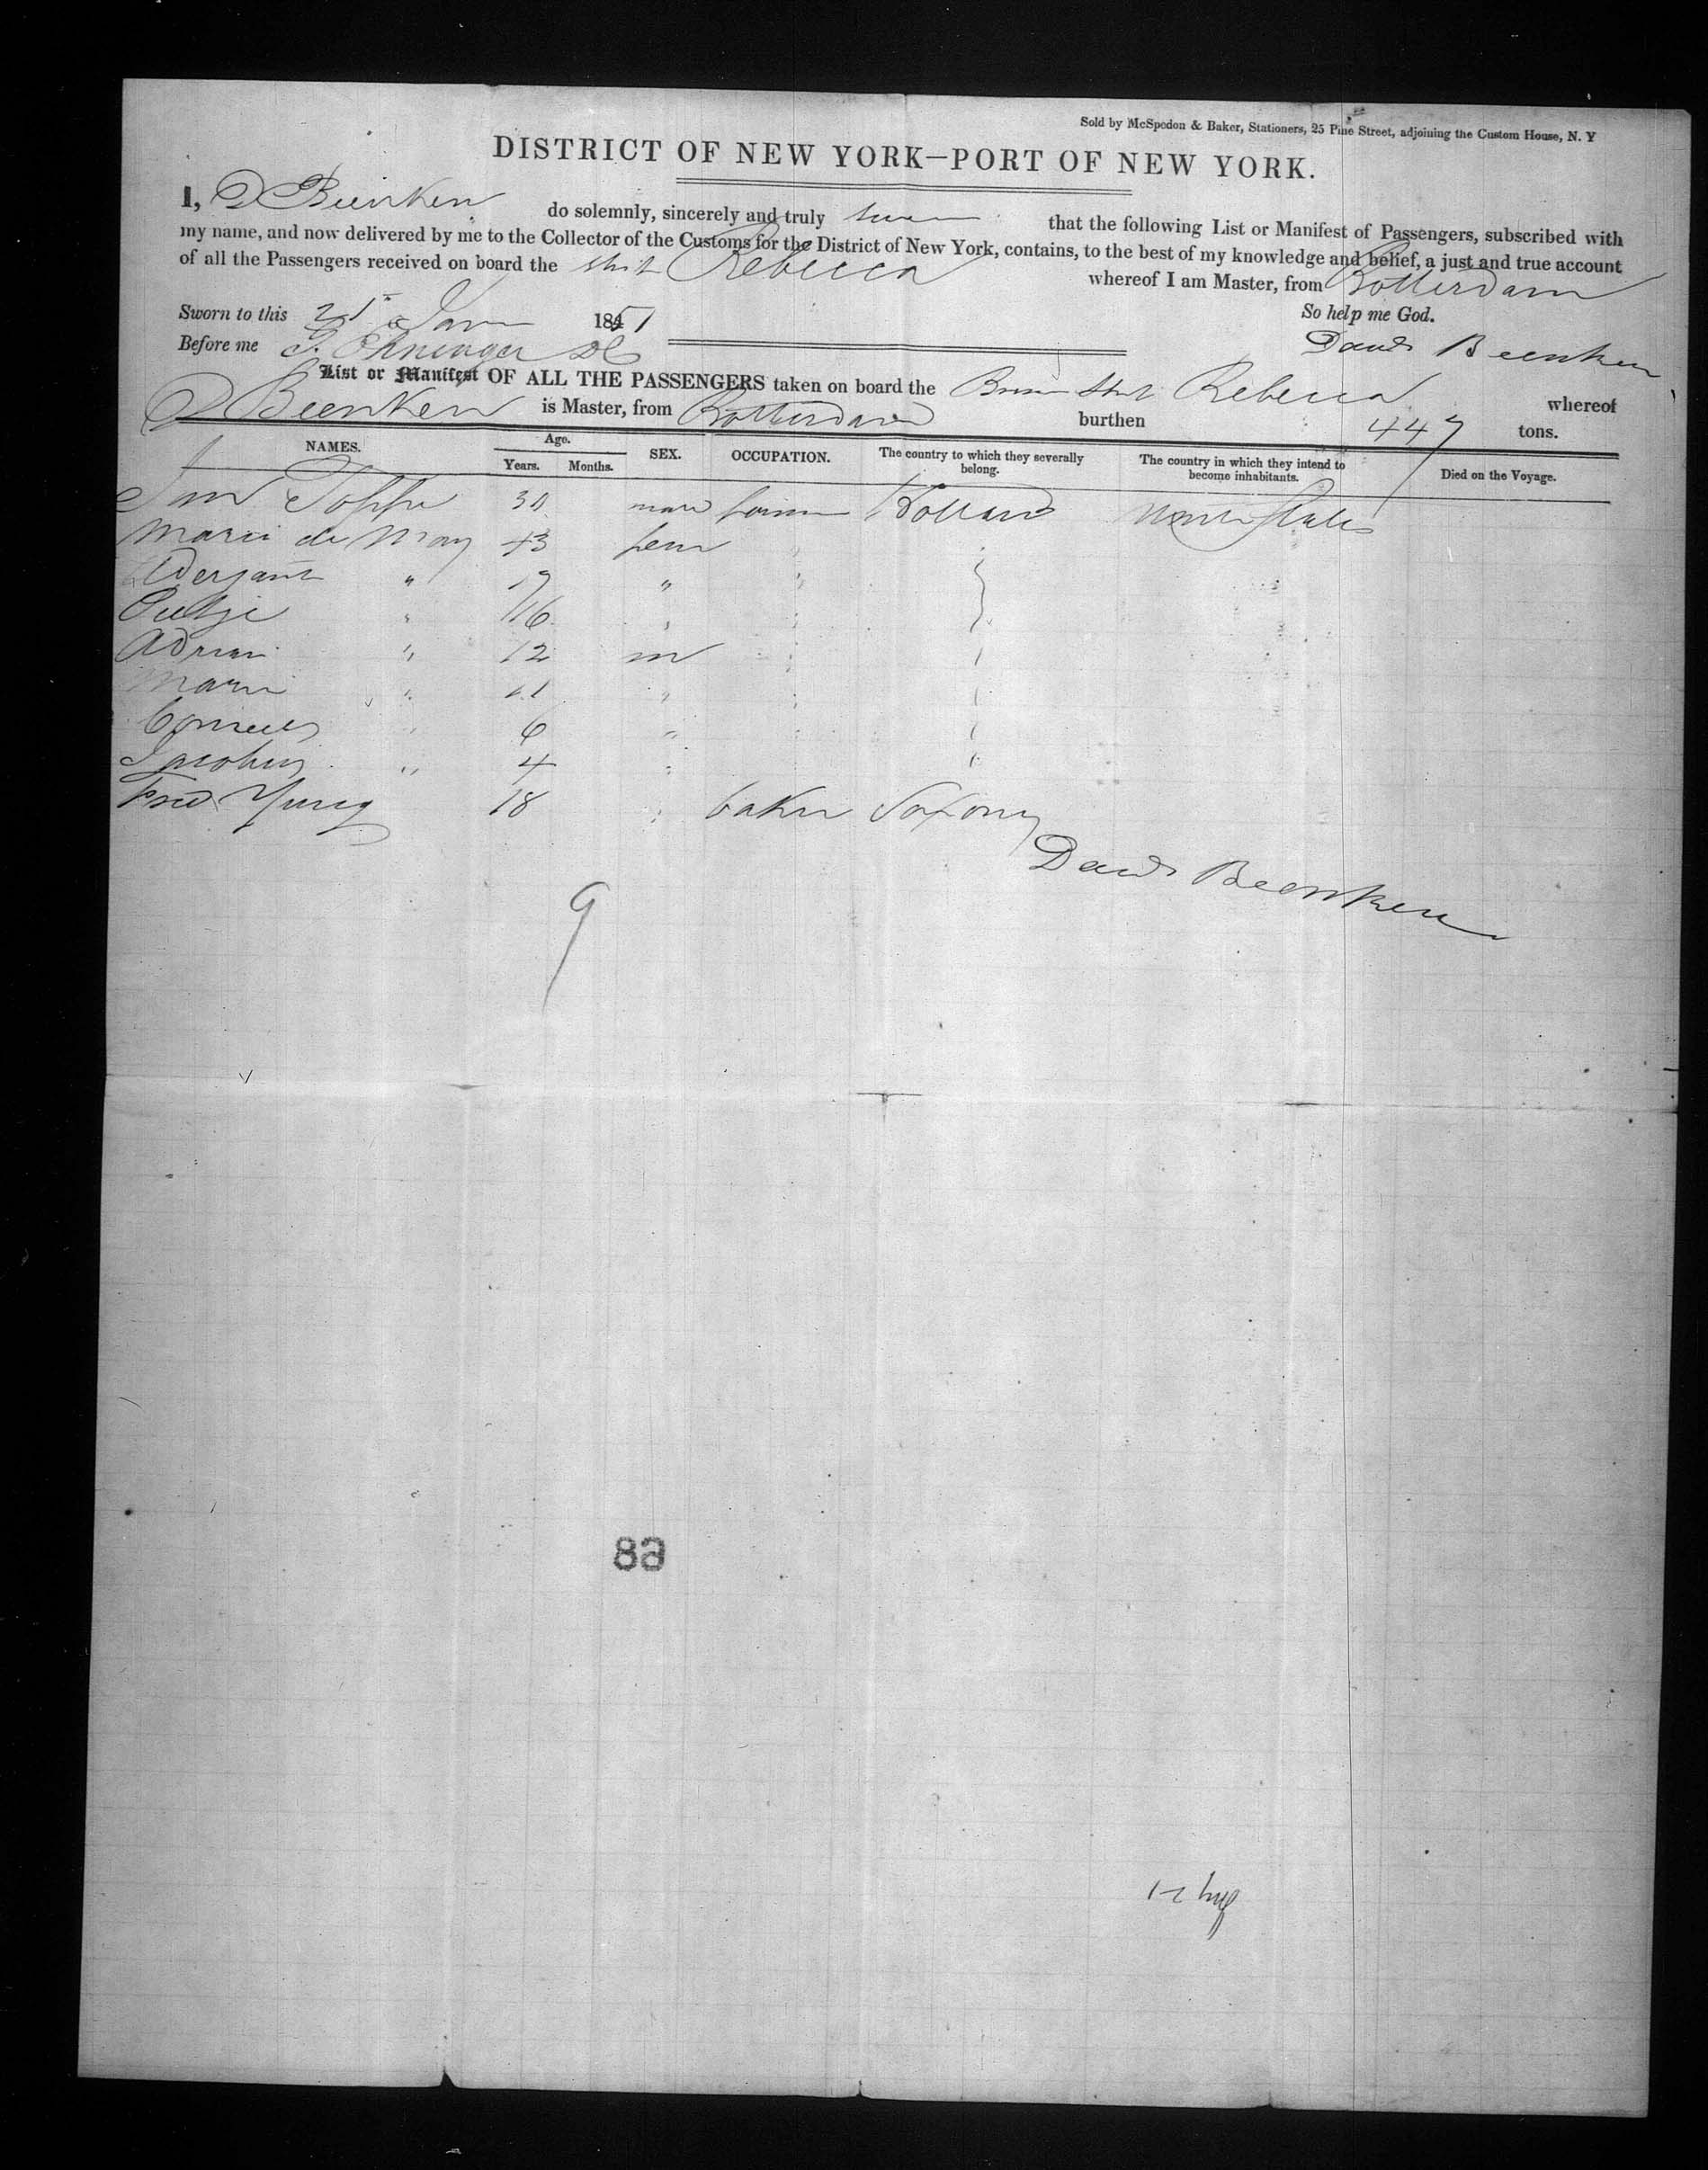 Sold by McSpedon & Baker, Stationers, 25 Pine Street, adjoining the Custom House, N. Y
DISTRICT OF NEW YORK—PORT OF NEW YORK.
I, D Beenken do solemnly, sincerely and truly swear that the following List or Manifest of Passengers, subscribed with
my name, and now delivered by me to the Collector of the Customs for the District of New York, contains, to the best of my knowledge and belief, a just and true account
of all the Passengers received on board the ship Rebecca whereof I am Master, from Rotterdam
Sworn to this 25 Jan 1851 So help me God.
Before me David Beenken
List or Manifest OF ALL THE PASSENGERS taken on board the Brem Ship Rebecca whereof
D Beenken is Master, from Rotterdam burthen 447 tons.
NAMES. Age. Years. Months. SEX. OCCUPATION. The country to which they severally belong. The country in which they intend to become inhabitants. Died on the Voyage.
Jan Toppe 30 male farmer Holland United States
Marie de May 43 fem
" 19 "
" 16
Adrian " 12 m
Marin " 11 "
Cornelis " 6 "
Jacobus " 4
Fred Yung 18 baker Saxony
David Beenken
9
89